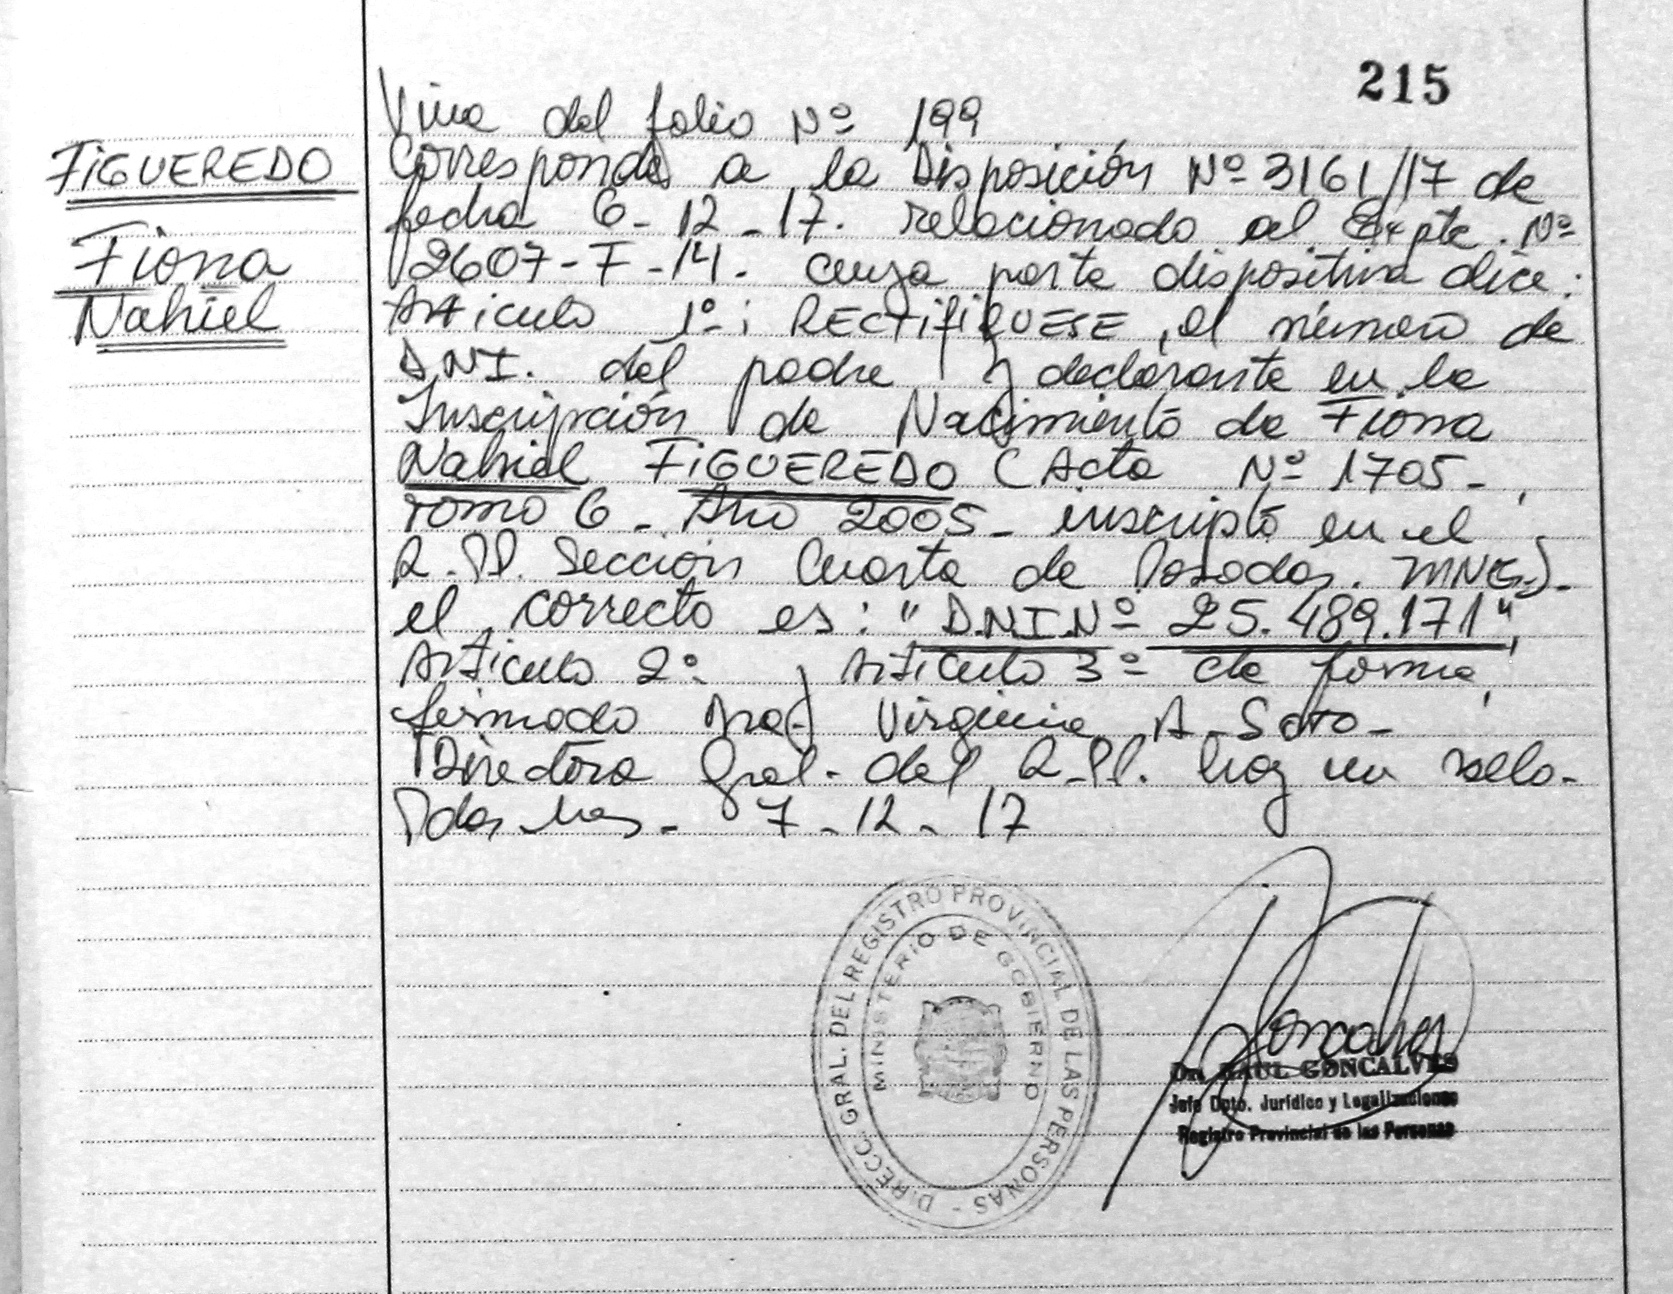 215
FiGUEREDO
Fiona
Nahiel
Viene del folio Nº 199
Corresponde a la Disposición Nº 3161/17 de
fecha 6-12-17. relacionado al Expte. Nº
2607-F-14. cuya parte dispositiva dice:
Articulo 1º: RECTIFIQUESE, el número de
D.NI. del padre y declarante en la
Inscripción de Nacimiento de Fiona
Nahiel FiGUEREDO (Acta Nº 1705-
Tomo 6- Año 2005- inscripto en el
R.PP. Sección Cuarta de Posadas. MNES)-
el correcto es: "D.NI.Nº 25.489.171"
Articulo 2º y Articulo 3º de forma
firmado Virginia A. Soto-
Directora Gral. del R.PP. hay un sello-
Pdas Mnes- 7-12-17
DIRECC. GRAL. DEL REGISTRO PROVINCIAL DE LAS PERSONAS -
MINISTERIO DE GOBIERNO
Dr. RAUL GONCALVES
Jefe Dpto. Jurídico y Legalizaciones
Registro Provincial de las Personas